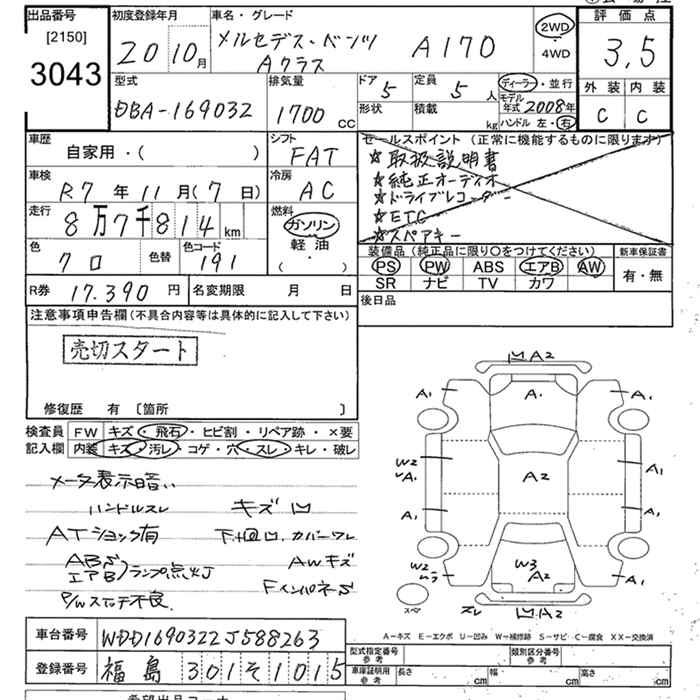 出品番号
[2150]
3043
初度登録年月
20 10月
車名・グレード
メルセデス・ベンツ A170
Aクラス
2WD
4WD
評価点
3,5
型式
DBA-169032
排気量
1700 cc
ドア 5
定員 5 人
形状
積載 kg
ディーラー・並行
モデル年式 2008年
ハンドル 左・右
外装 内装
C C
車歴
自家用・( )
シフト
FAT
車検
R7 年 11 月(7 日)
冷房
AC
走行
8万7千814 km
燃料
ガソリン
軽油
( ・ )
色
クロ
色替
色コード
191
R券 17.390 円
名変期限 月 日
セールスポイント(正常に機能するものに限ります)
☆取扱説明書
☆純正オーディオ
☆ドライブレコーダー
☆ETC
☆スペアキー
装備品(純正品に限り〇をつけてください)
PS PW ABS エアB AW
SR ナビ TV カワ
新車保証書
有・無
後日品
注意事項申告欄(不具合内容等は具体的に記入して下さい)
売切スタート
修復歴 有 〔箇所 〕
検査員
記入欄
FW キズ・飛石・ヒビ割・リペア跡・×要
内装 キズ・汚レ・コゲ・穴・スレ・キレ・破レ
メータ表示暗い
ハンドルスレ キズ凹
ATショック有
カバーワレ
ABS
エアB)ランプ点灯
AWキズ
P/Wスイッチ不良.
FインパネS
凹A2
A1 A. A1
W2
A2
A1
A1 A1
W3
W2 A2
A1
スペア
スレ 凹A2
A-キズ E-エクボ U-凹み W-補修跡 S-サビ C-腐食 XX-交換済
車台番号 WDD1690322J588263
登録番号 福島 301そ1015
型式指定番号
参考
類別区分番号
参考
車庫証明用
参考
長さ cm
幅 cm
高さ cm